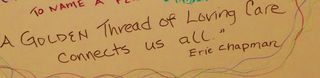 TO NAME A
A GOLDEN Thread of Loving Care
connects us all."
Erie Chapman